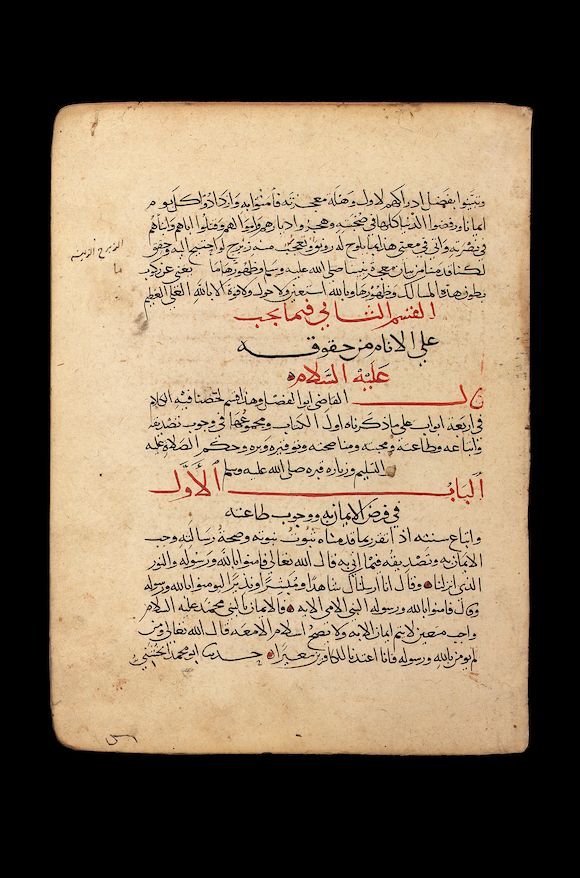 وتبينوا بفضل ادراكهم لاول وهلة معجزته فأمنوا به وازدادوا كل يوم
ايمانا ورفضوا الدنيا كلها في صحبته وهجروا ديارهم واموالهم وقتلوا اباهم وابناهم
في نصرته واتى في معنى هذا بما يلوح له رونق ويعجب منه زبرج لو احتيج اليه وحقق
لكنا قدمنا من بيان معجزة نبينا صلى الله عليه وسلم وظهورها ما يغني عن ركوب
بطون هذه المسالك وظهورها وبالله استعين ولا حول ولا قوة الا بالله العلي العظيم
القسم الثاني فيما يجب
على الانام من حقوقه
عليه السلام
قال القاضي ابو الفضل وهذا قسم لخصنا فيه الكلام
في اربعة ابواب على ما ذكرناه اول الكتاب ومجموعها في وجوب تصديقه
واتباعه وطاعته ومحبته ومناصحته وتوقيره وبره وحكم الصلاة عليه
والتسليم وزيارة قبره صلى الله عليه وسلم
الباب الأول
في فرض الايمان به ووجوب طاعته
واتباع سنته اذا تقرر بما قدمناه ثبوت نبوته وصحة رسالته وجب
الايمان به وتصديقه فيما اتى به قال الله تعالى فامنوا بالله ورسوله والنور
الذي انزلنا وقال انا ارسلناك شاهدا ومبشرا ونذيرا لتومنوا بالله ورسوله
وقال فامنوا بالله ورسوله النبي الامي الاية فالايمان بالنبي محمد عليه السلام
واجب معين لا يتم ايمان الا به ولا يصح اسلام الا معه قال الله تعالى ومن
لم يومن بالله ورسوله فانا اعتدنا للكافرين سعيرا حدثنا ابو محمد الخشني
الزبرج الزينة